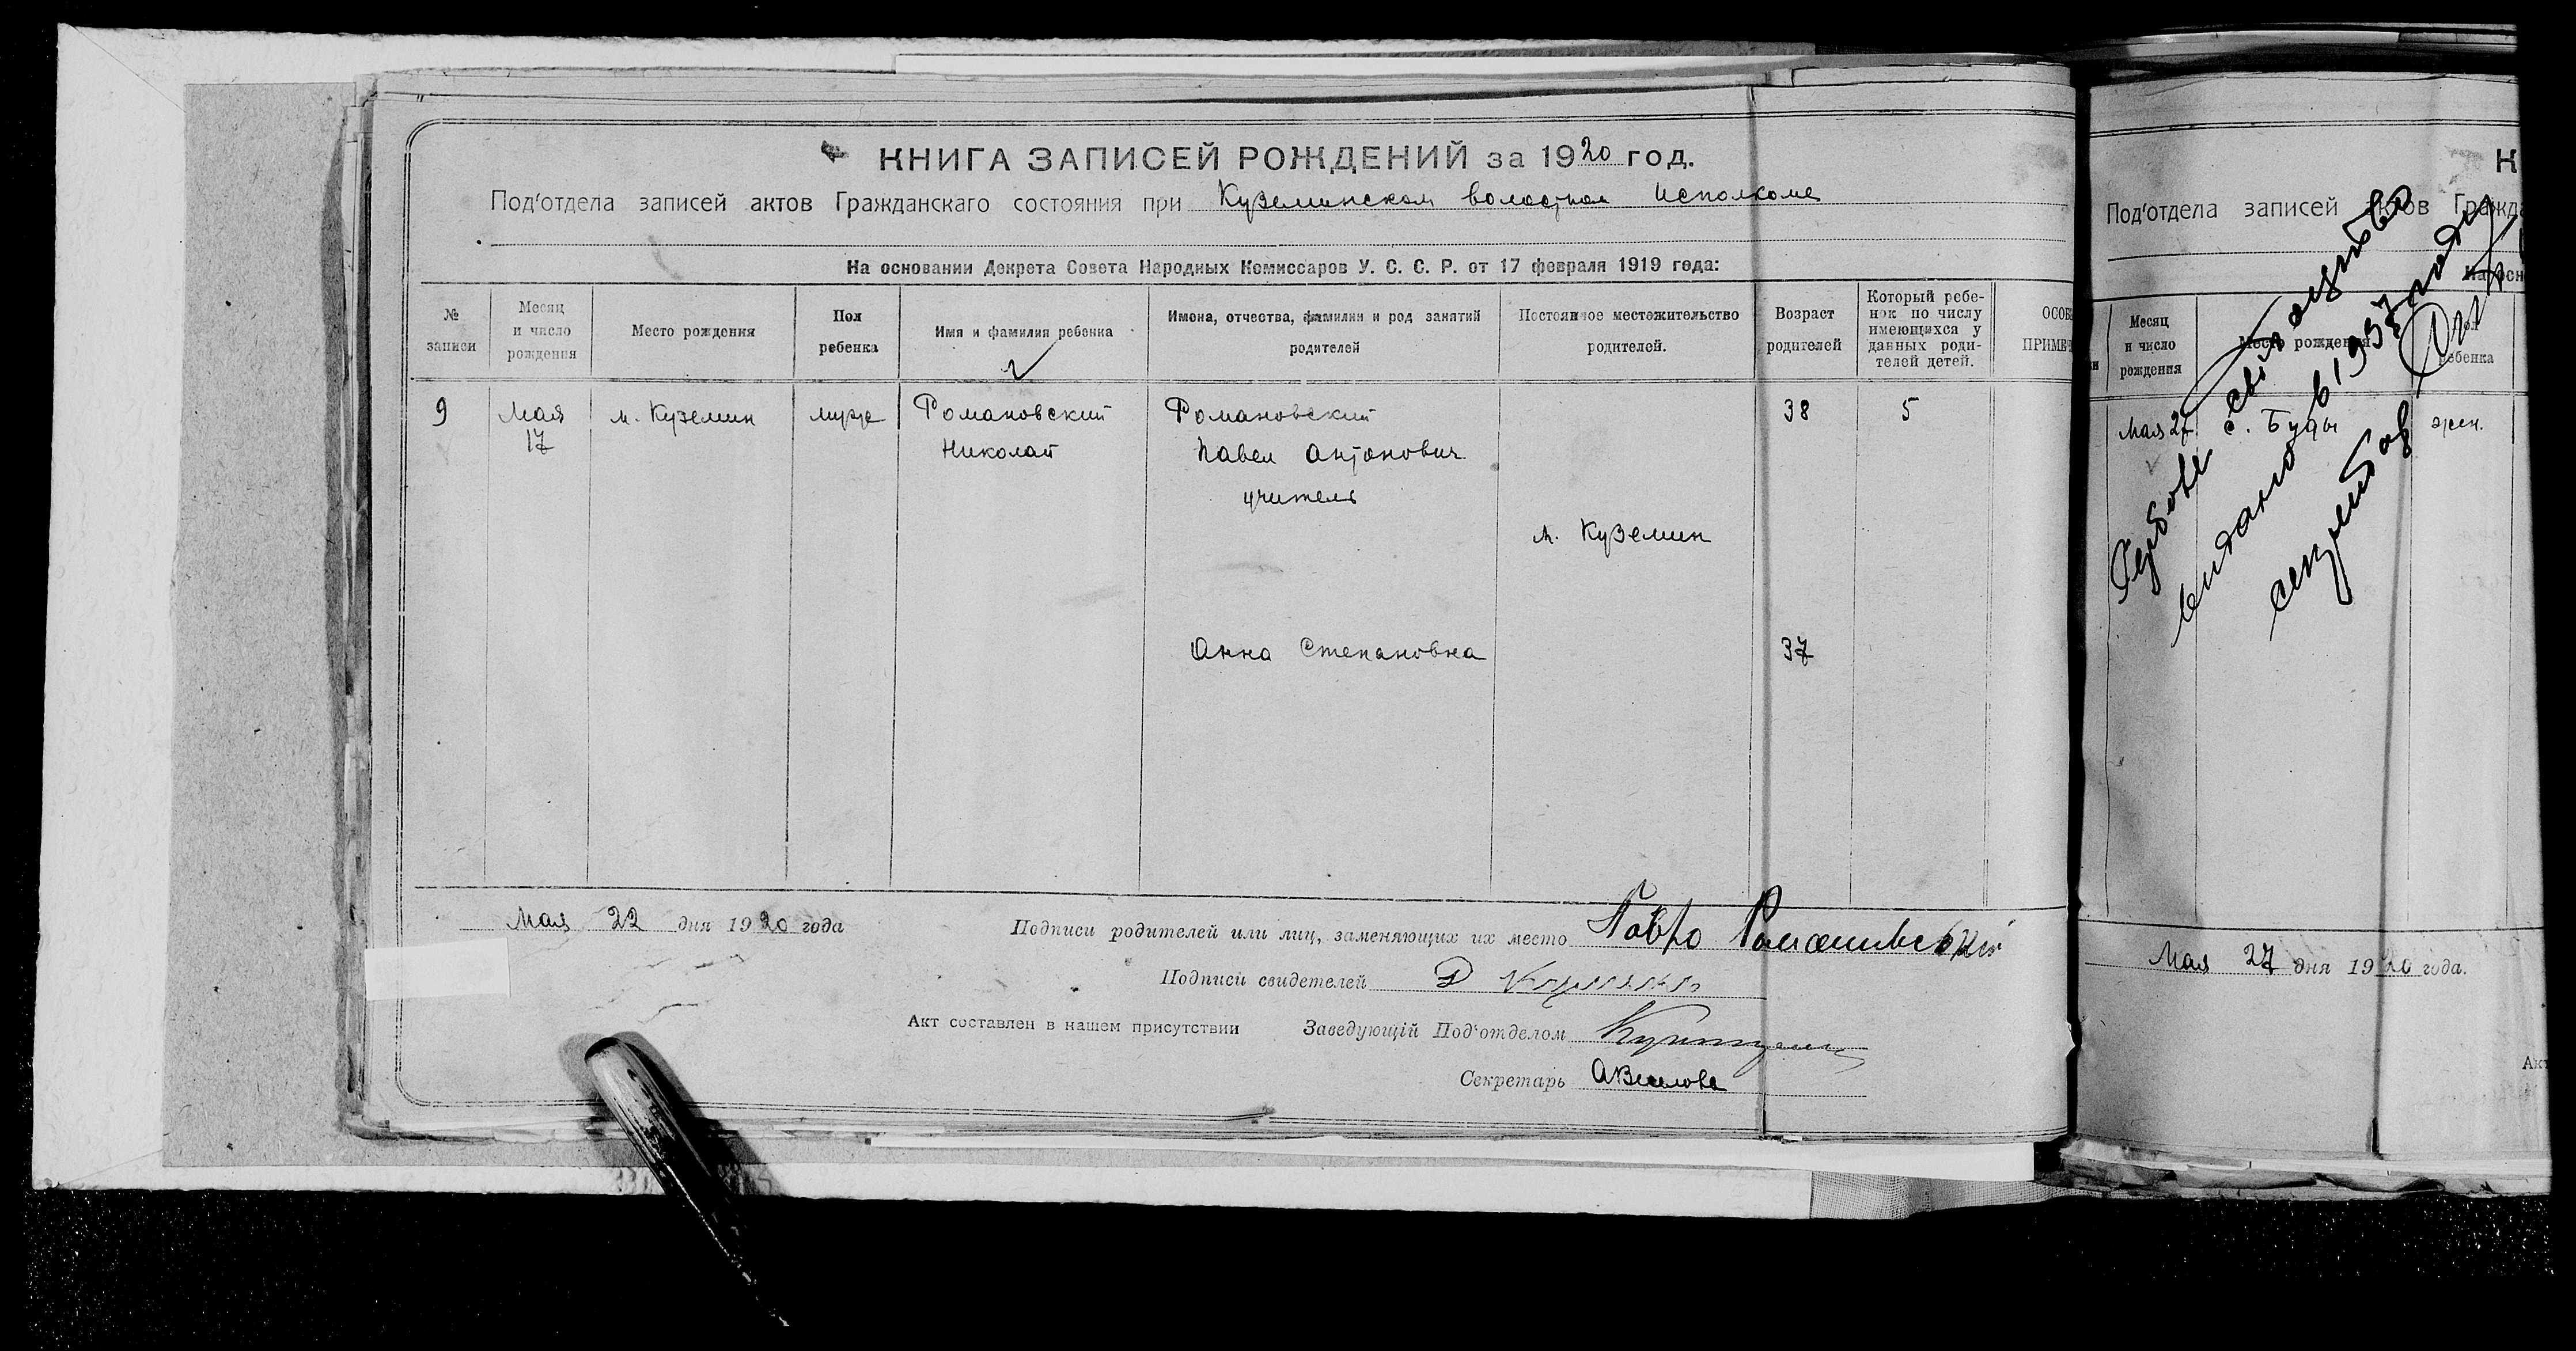 КНИГА ЗАПИСЕЙ РОЖДЕНИЙ за 1920 год.
Под'отдела записей актов Гражданскаго состояния при Куземинском волостном Исполкоме
На основании Декрета Совета Народных Комиссаров У. С. С. Р. от 17 февраля 1919 года:
№ записи
Месяц и число рождения
Место рождения
Пол ребенка
Имя и фамилия ребенка
Имена, отчества, фамилии и род занятий родителей
Постоянное местожительство родителей.
Возраст родителей
Который ребе-
нок по числу
имеющихся у
данных роди-
телей детей.
ОСОБ
ПРИМЕ
9 Мая м. Куземин муж Романовский Романовский 38 5
17 Николай Павел Антонович
учитель
м. Куземин
Анна Степановна 37
Мая 22 дня 1920 года
Подписи родителей или лиц, заменяющих их место Павло Романивський
Подписи свидетелей
Акт составлен в нашем присутствии Заведующій Под'отделом
Секретарь
К
Под'отдела записей актов Гражда
На осн
Месяц и число рождения
Место рождения
ребенка
Мая 27 с. Буды жен.
свідоцтво
видано в 1937
Мая 27 дня 1920 года.
Ак